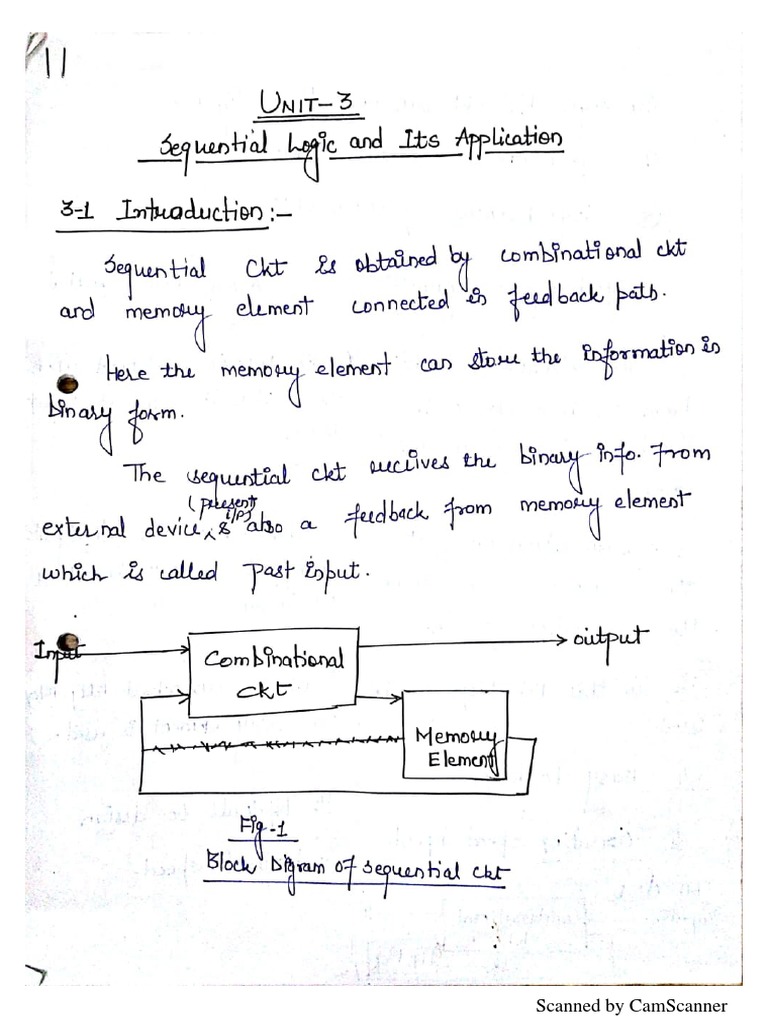 11
UNIT-3
Sequential Logic and Its Application
3-1 Introduction:-
Sequential Ckt is obtained by combinational ckt
and memory element connected in feedback path.
Here the memory element can store the information in
binary form.
The sequential ckt receives the binary info. From
(present i/p)
external device, & also a feedback from memory element
which is called Past input.
Input
Combinational
Ckt
output
Memory
Element
Fig-1
Block Digram of sequential ckt
Scanned by CamScanner